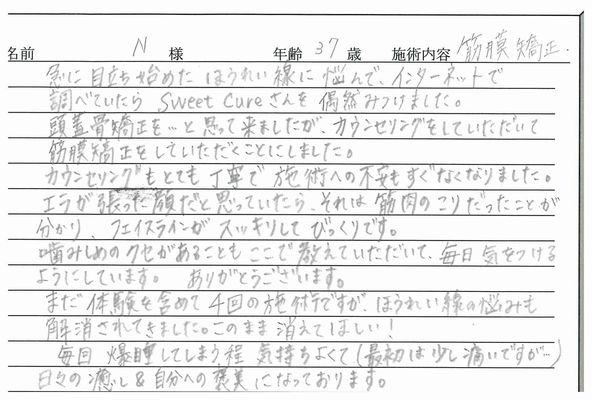 名前 N 様 年齢 37 歳 施術内容 筋膜矯正.
急に目立ち始めた ほうれい線に悩んで、インターネットで
調べていたら Sweet Cureさんを 偶然みつけました。
頭蓋骨矯正を…と思って来ましたが、カウンセリングをしていただいて
筋膜矯正をしていただくことにしました。
カウンセリングもとても丁寧で 施術への不安もすぐなくなりました。
エラが張った顔だと思っていたら、それは筋肉のこりだったことが
分かり、フェイスラインが スッキリして びっくりです。
噛みしめのクセがあることも ここで教えていただいて、毎日気をつける
ようにしています。 ありがとうございます。
まだ 体験を含めて 4回の施術ですが、ほうれい線の悩みも
解消されてきました。このまま消えてほしい!
毎回 爆睡してしまう程 気持ちよくて(最初は少し痛いですが…)
日々の癒し&自分への褒美になっております。